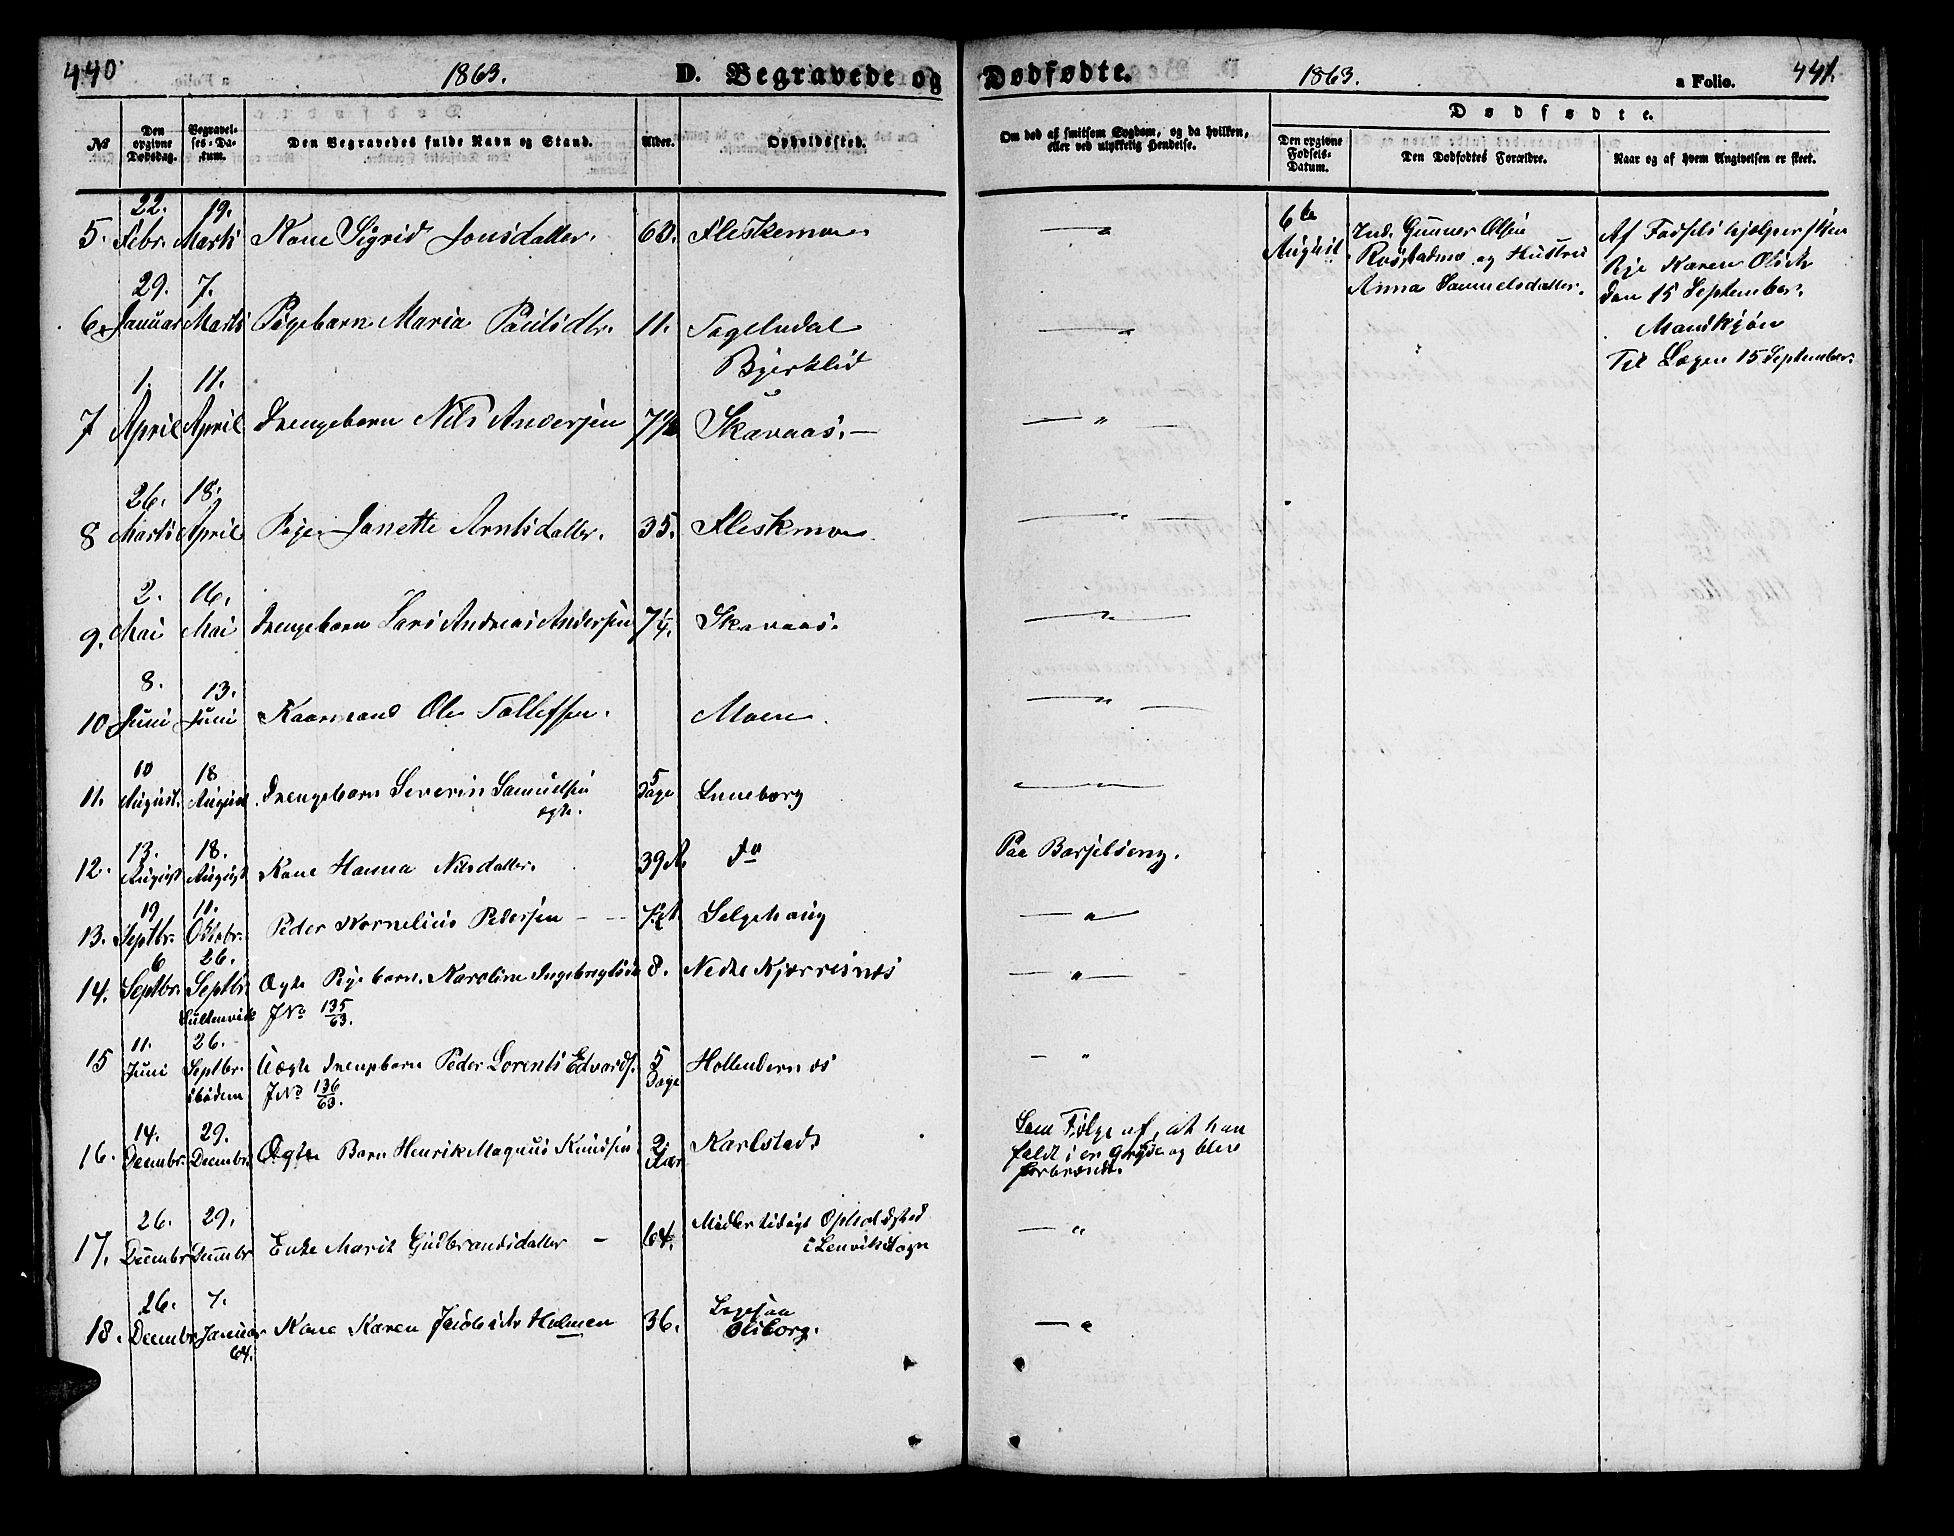 440. 1863. D. Begravede og Dødfødte. 1863. a Folio. 441.
No. Den opgivne Dødsdag. Begravelses-Datum. Den Begravedes fulde Navn og Stand. Alder. Opholdssted. Om død af smitsom Sygdom, og da hvilken, eller ved ulykkelig Hendelse. Dødfødte. Den opgivne Fødsels-Datum. Den Dødfødtes Forældre. Naar og af hvem Angivelsen er skeet.
22. 19.
5. Febr. Marts Kone Sigrid Jonsdatter. 60. Fleskemoe "
29. 7.
6. Januar Marts Pigebarn Maria Paulsdtr. 11. Fagelidal "
Bjerklid
1. 11.
7 April April Drengebarn Nils Andersen 7½ Skavaas. "
26. 18.
8 Marts April Pige Janette Arntsdatter. 35. Fleskmoe "
2. 16.
9. Mai Mai Drengebarn Lars Andreas Andersen 7¼. Skavaas. "
8. 13.
10 Juni Juni Kaarmand Ole Tollefsen. Moen. "
10 18 5
11. August. August Drengebarn Severin Samuelsen Dage Luneborg "
ægte.
13. 18.
12. August August Kone Hanna Nilsdatter. 39 A do Paa Barselseng.
19 11.
13. Septbr. Oktobr. Peder Kornelius Pedersen Selgehaug "
6 26.
14. Septbr. Septbr. Ægte Pigebarn. Karoline Ingebregtsd 8. Nedre Kjerresnes "
Sultenvik J No 135/63.
11. 26.
15 Juni Septbr. Uægte Drengebarn Peder Lorents Edvards. 5 Dage Hollendernes "
Ibidem J No 136/63.
14. 29.
16. Decembr. Decembr. Ægte Barn Henrik Magnus Knudsen 2 Aar Karlstad Som Følge af, at han
faldt i en Gryde og blev
forbrændt.
26. 29.
17. Decembr Decembr Enke Marit Gudbrandsdatter 64. Midlertidigt Opholdsted "
i Lenvik Sogn
26. 7.
18. Decembr Januar Kone Karen Jacobsdtr Holmen 36. "
64. Olsborg.
6te August
Ind. Gunner Olsen
Rostadmo og Hustru
Anna Samuelsdatter.
Af Fødselshjelpersken
Pige Karen Olsdtr
den 15 September.
Mandkjøn
Til Lægen 15 September.